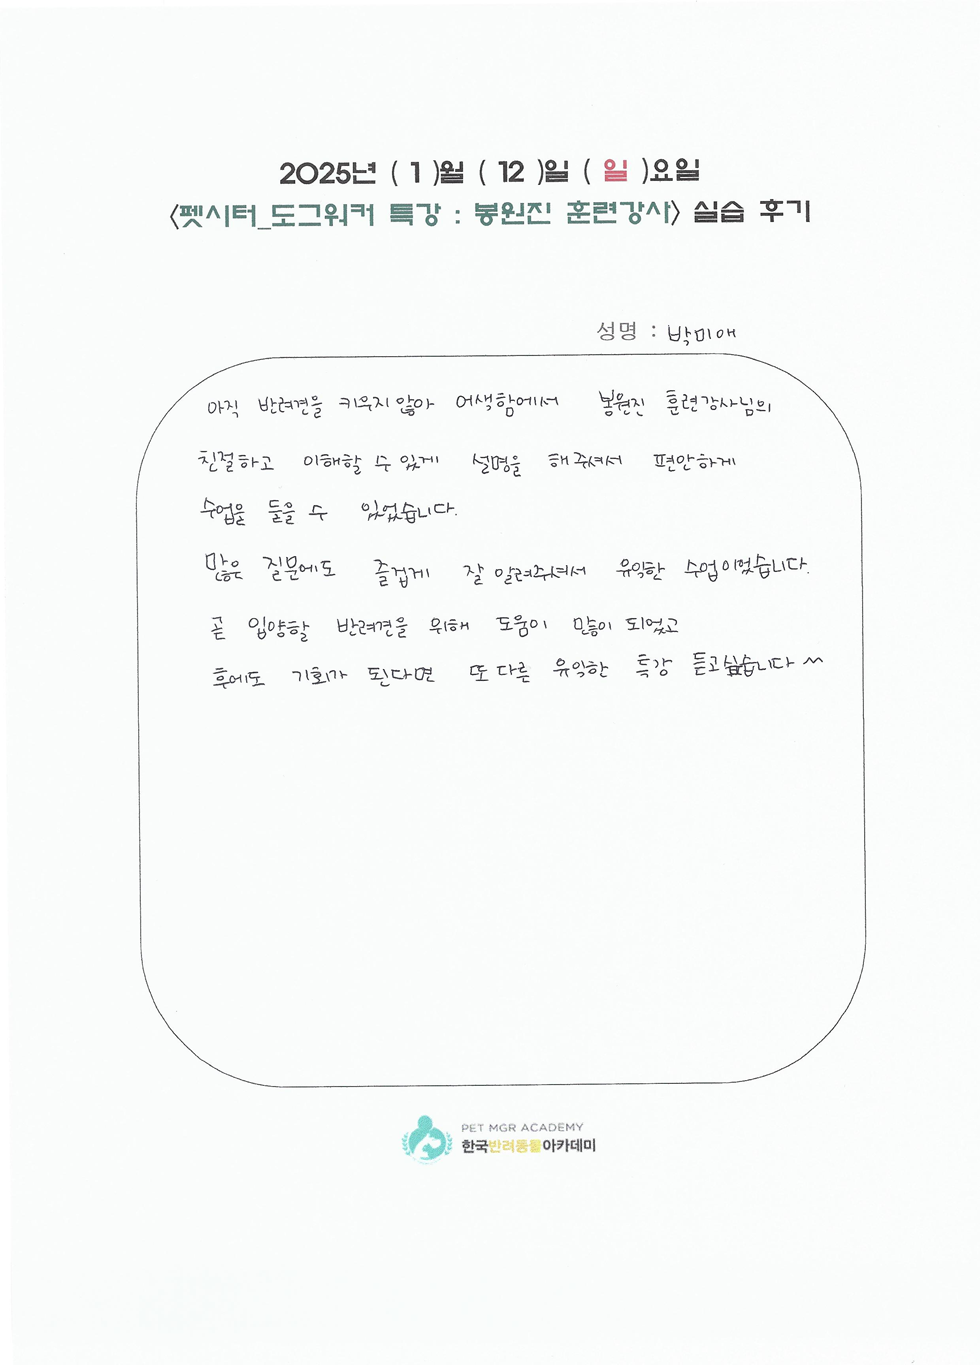 2025년 ( 1 )월 ( 12 )일 ( 일 )요일
<펫시터_도그워커 특강 : 봉원진 훈련강사> 실습 후기
성명 : 박미애
아직 반려견을 키우지 않아 어색함에서 봉원진 훈련강사님의
친절하고 이해할 수 있게 설명을 해주셔서 편안하게
수업을 들을 수 있었습니다.
많은 질문에도 즐겁게 잘 알려주셔서 유익한 수업이었습니다.
곧 입양할 반려견을 위해 도움이 많이 되었고
후에도 기회가 된다면 또 다른 유익한 특강 듣고싶습니다 ^^
PET MGR ACADEMY
한국반려동물아카데미